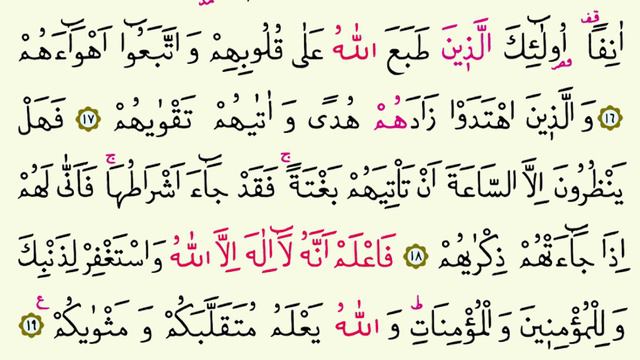 اٰنِفًا اُولٰٓئِكَ الَّذٖينَ طَبَعَ اللّٰهُ عَلٰى قُلُوبِهِمْ وَاتَّبَعُٓوا اَهْوَٓاءَهُمْ
١٦ وَالَّذٖينَ اهْتَدَوْا زَادَهُمْ هُدًى وَاٰتٰيهُمْ تَقْوٰيهُمْ ١٧ فَهَلْ
يَنْظُرُونَ اِلَّا السَّاعَةَ اَنْ تَأْتِيَهُمْ بَغْتَةًۚ فَقَدْ جَٓاءَ اَشْرَاطُهَاۚ فَاَنّٰى لَهُمْ
اِذَا جَٓاءَتْهُمْ ذِكْرٰيهُمْ ١٨ فَاعْلَمْ اَنَّهُ لَٓا اِلٰهَ اِلَّا اللّٰهُ وَاسْتَغْفِرْ لِذَنْبِكَ
وَلِلْمُؤْمِنٖينَ وَالْمُؤْمِنَاتِؕ وَاللّٰهُ يَعْلَمُ مُتَقَلَّبَكُمْ وَمَثْوٰيكُمْ ع ١٩